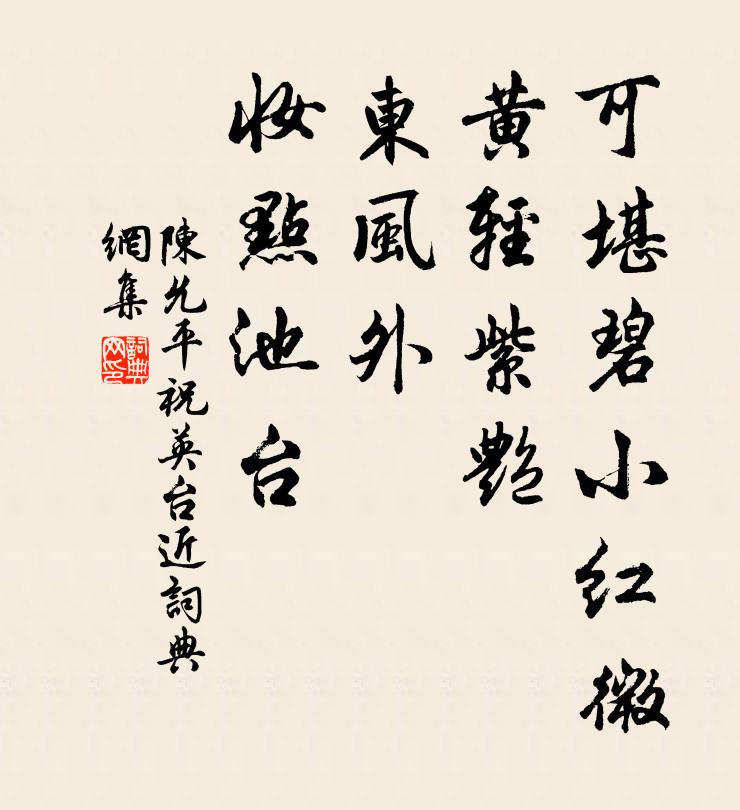 可堪碧小紅微
黃輕紫艷
東風外
妝點池台
陳允平祝英台近詞典
網集
詞典
网印